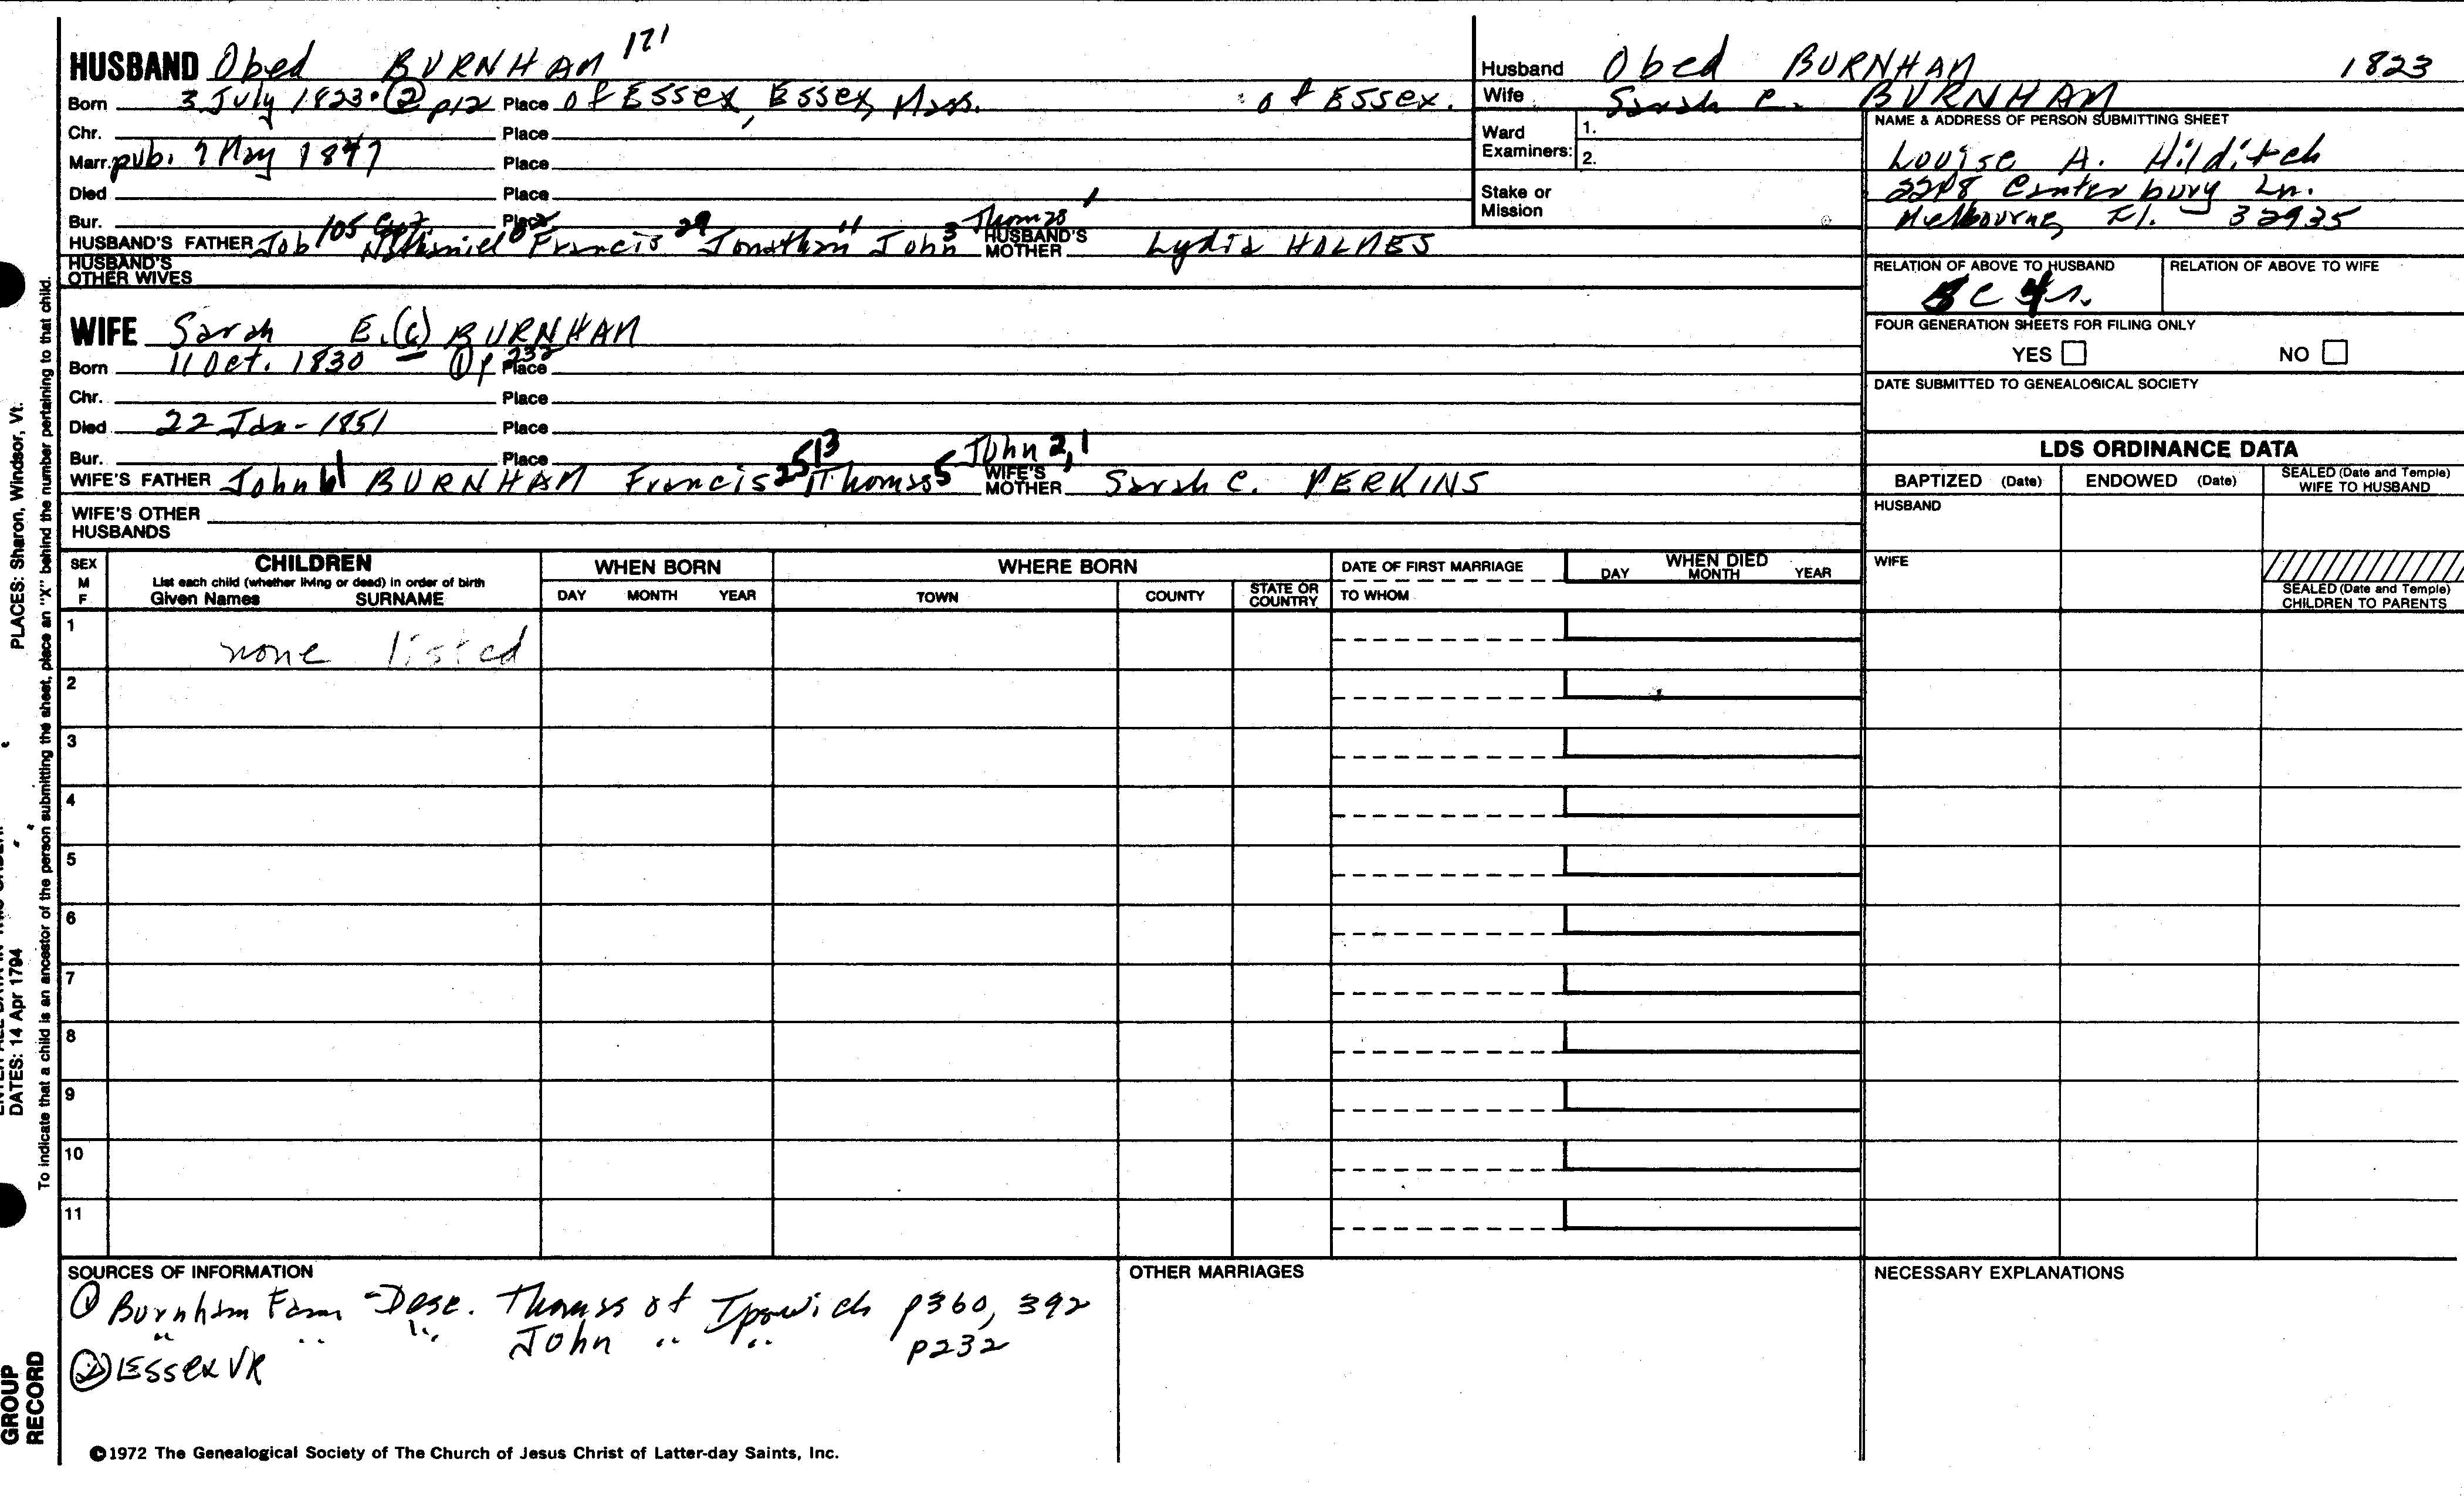 HUSBAND Obed BURNHAM 171
Born 3 July 1823 (2) p12 Place of Essex, Essex, Mass. of Essex.
Chr. Place
Marr. pub. 9 May 1847 Place
Died Place
Bur. Place
HUSBAND'S FATHER Job 105 Nathaniel Francis 29 Jonathan 11 John 3 Thomas 1 HUSBAND'S MOTHER Lydia HOLMES
HUSBAND'S OTHER WIVES
WIFE Sarah E. (C) BURNHAM
Born 11 Oct. 1830 (1) p 232 Place
Chr. Place
Died 22 Jan - 1851 Place
Bur. Place
WIFE'S FATHER John BURNHAM Francis Thomas 5 John 2,1 WIFE'S MOTHER Sarah C. PERKINS
WIFE'S OTHER HUSBANDS
Husband Obed BURNHAM 1823
Wife Sarah E. BURNHAM
Ward Examiners: 1.
2.
Stake or Mission
NAME & ADDRESS OF PERSON SUBMITTING SHEET
Louise A. Hilditch
2208 Canterbury Ln.
Melbourne, Fl. 32935
RELATION OF ABOVE TO HUSBAND
RELATION OF ABOVE TO WIFE
FOUR GENERATION SHEETS FOR FILING ONLY
YES NO
DATE SUBMITTED TO GENEALOGICAL SOCIETY
LDS ORDINANCE DATA
BAPTIZED (Date) ENDOWED (Date) SEALED (Date and Temple) WIFE TO HUSBAND
HUSBAND
WIFE
SEALED (Date and Temple) CHILDREN TO PARENTS
SEX M F
CHILDREN
List each child (whether living or dead) in order of birth
Given Names SURNAME
WHEN BORN
DAY MONTH YEAR
WHERE BORN
TOWN COUNTY STATE OR COUNTRY
DATE OF FIRST MARRIAGE
TO WHOM
WHEN DIED
DAY MONTH YEAR
1 none listed
2
3
4
5
6
7
8
9
10
11
SOURCES OF INFORMATION
(1) Burnham Fam - Desc. Thomas of Ipswich p360, 392
" " " John " " p232
(2) Essex VR
OTHER MARRIAGES
NECESSARY EXPLANATIONS
©1972 The Genealogical Society of The Church of Jesus Christ of Latter-day Saints, Inc.
PLACES: Sharon, Windsor, Vt.
DATES: 14 Apr 1794
To indicate that a child is an ancestor of the person submitting the sheet, place an "X" behind the number pertaining to that child.
GROUP RECORD